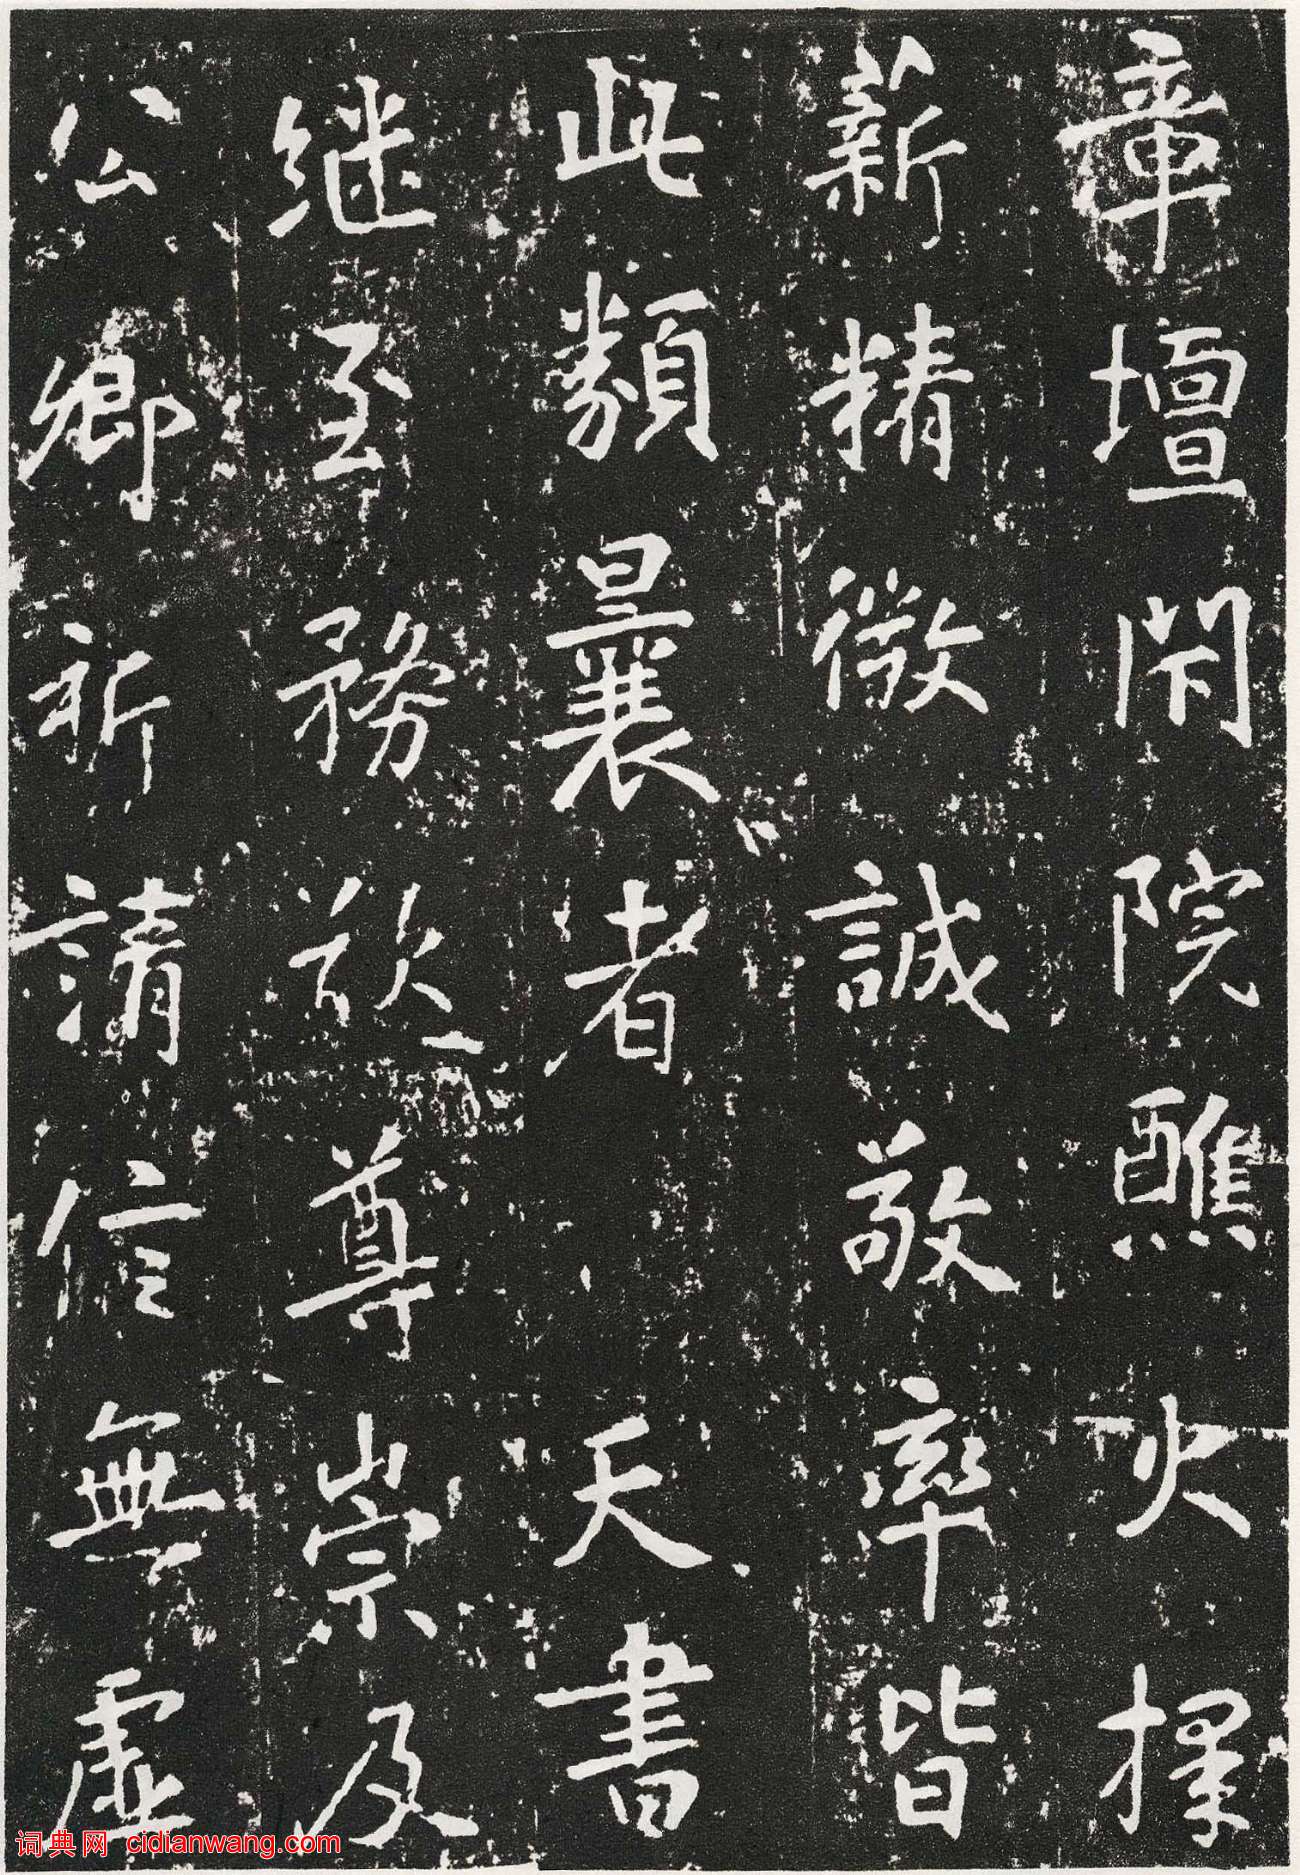 章壇閑院醮火揲
薪精徴誠敬率皆
此類曩者天書
继至務欲尊崇及
公卿祈請信無虛
词典网 cidianwang.com